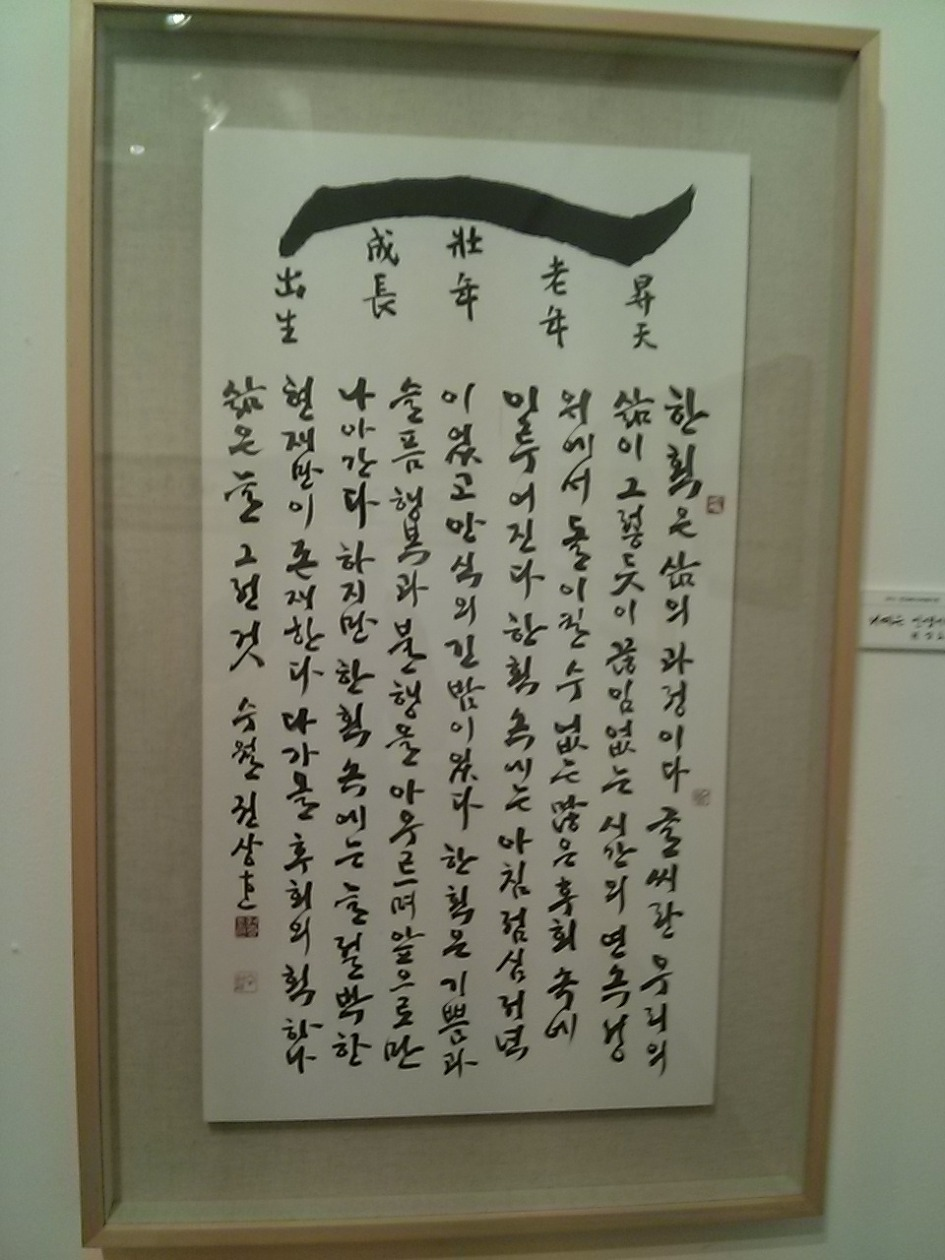 出生
成長
壯年
老年
昇天
한획은 삶의 과정이다 글씨란 우리의
삶이 그렇듯이 끊임없는 시간의 연속성
위에서 돌이킬 수 없는 많은 후회 속에
한획 속에는 아침 점심 저녁
이 있고 안식의 긴 밤이 있다 한획은 기쁨과
슬픔 행복과 불행을 아우르며 앞으로만
나아간다 하지만 한획 속에는 늘 절박한
현재만이 존재한다 다가올 후회의 획 하나
삶은 늘 그런 것 수월